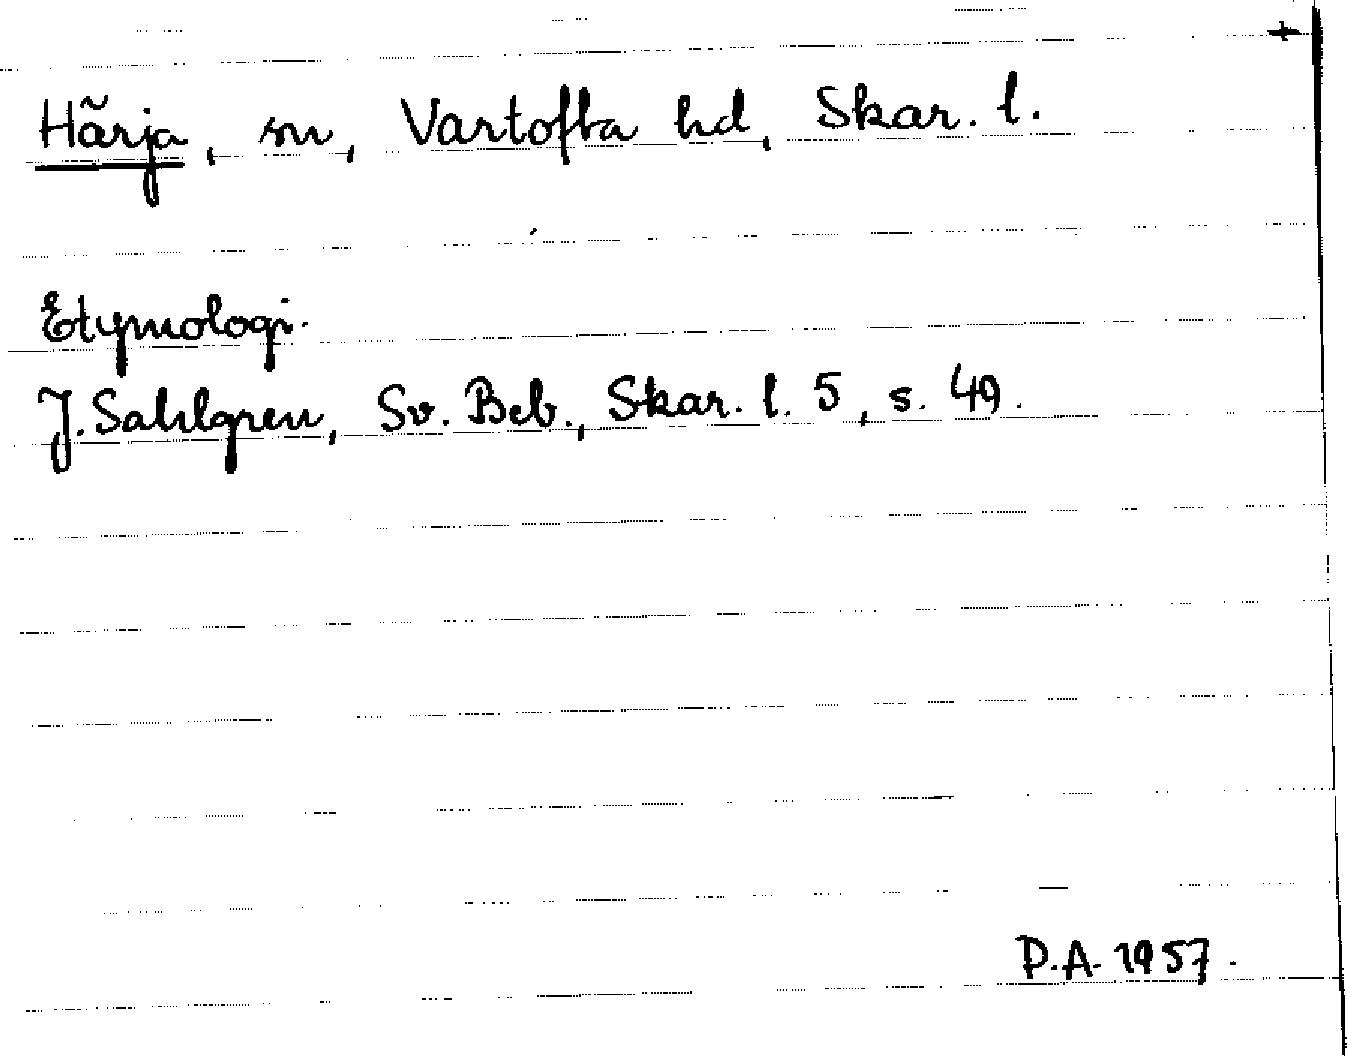 +
Härja, sn, Vartofta hd, Skar. l.
Etymologi.
J. Sahlgren, Sv. Beb., Skar. l. 5, s. 49.
P.A. 1957.